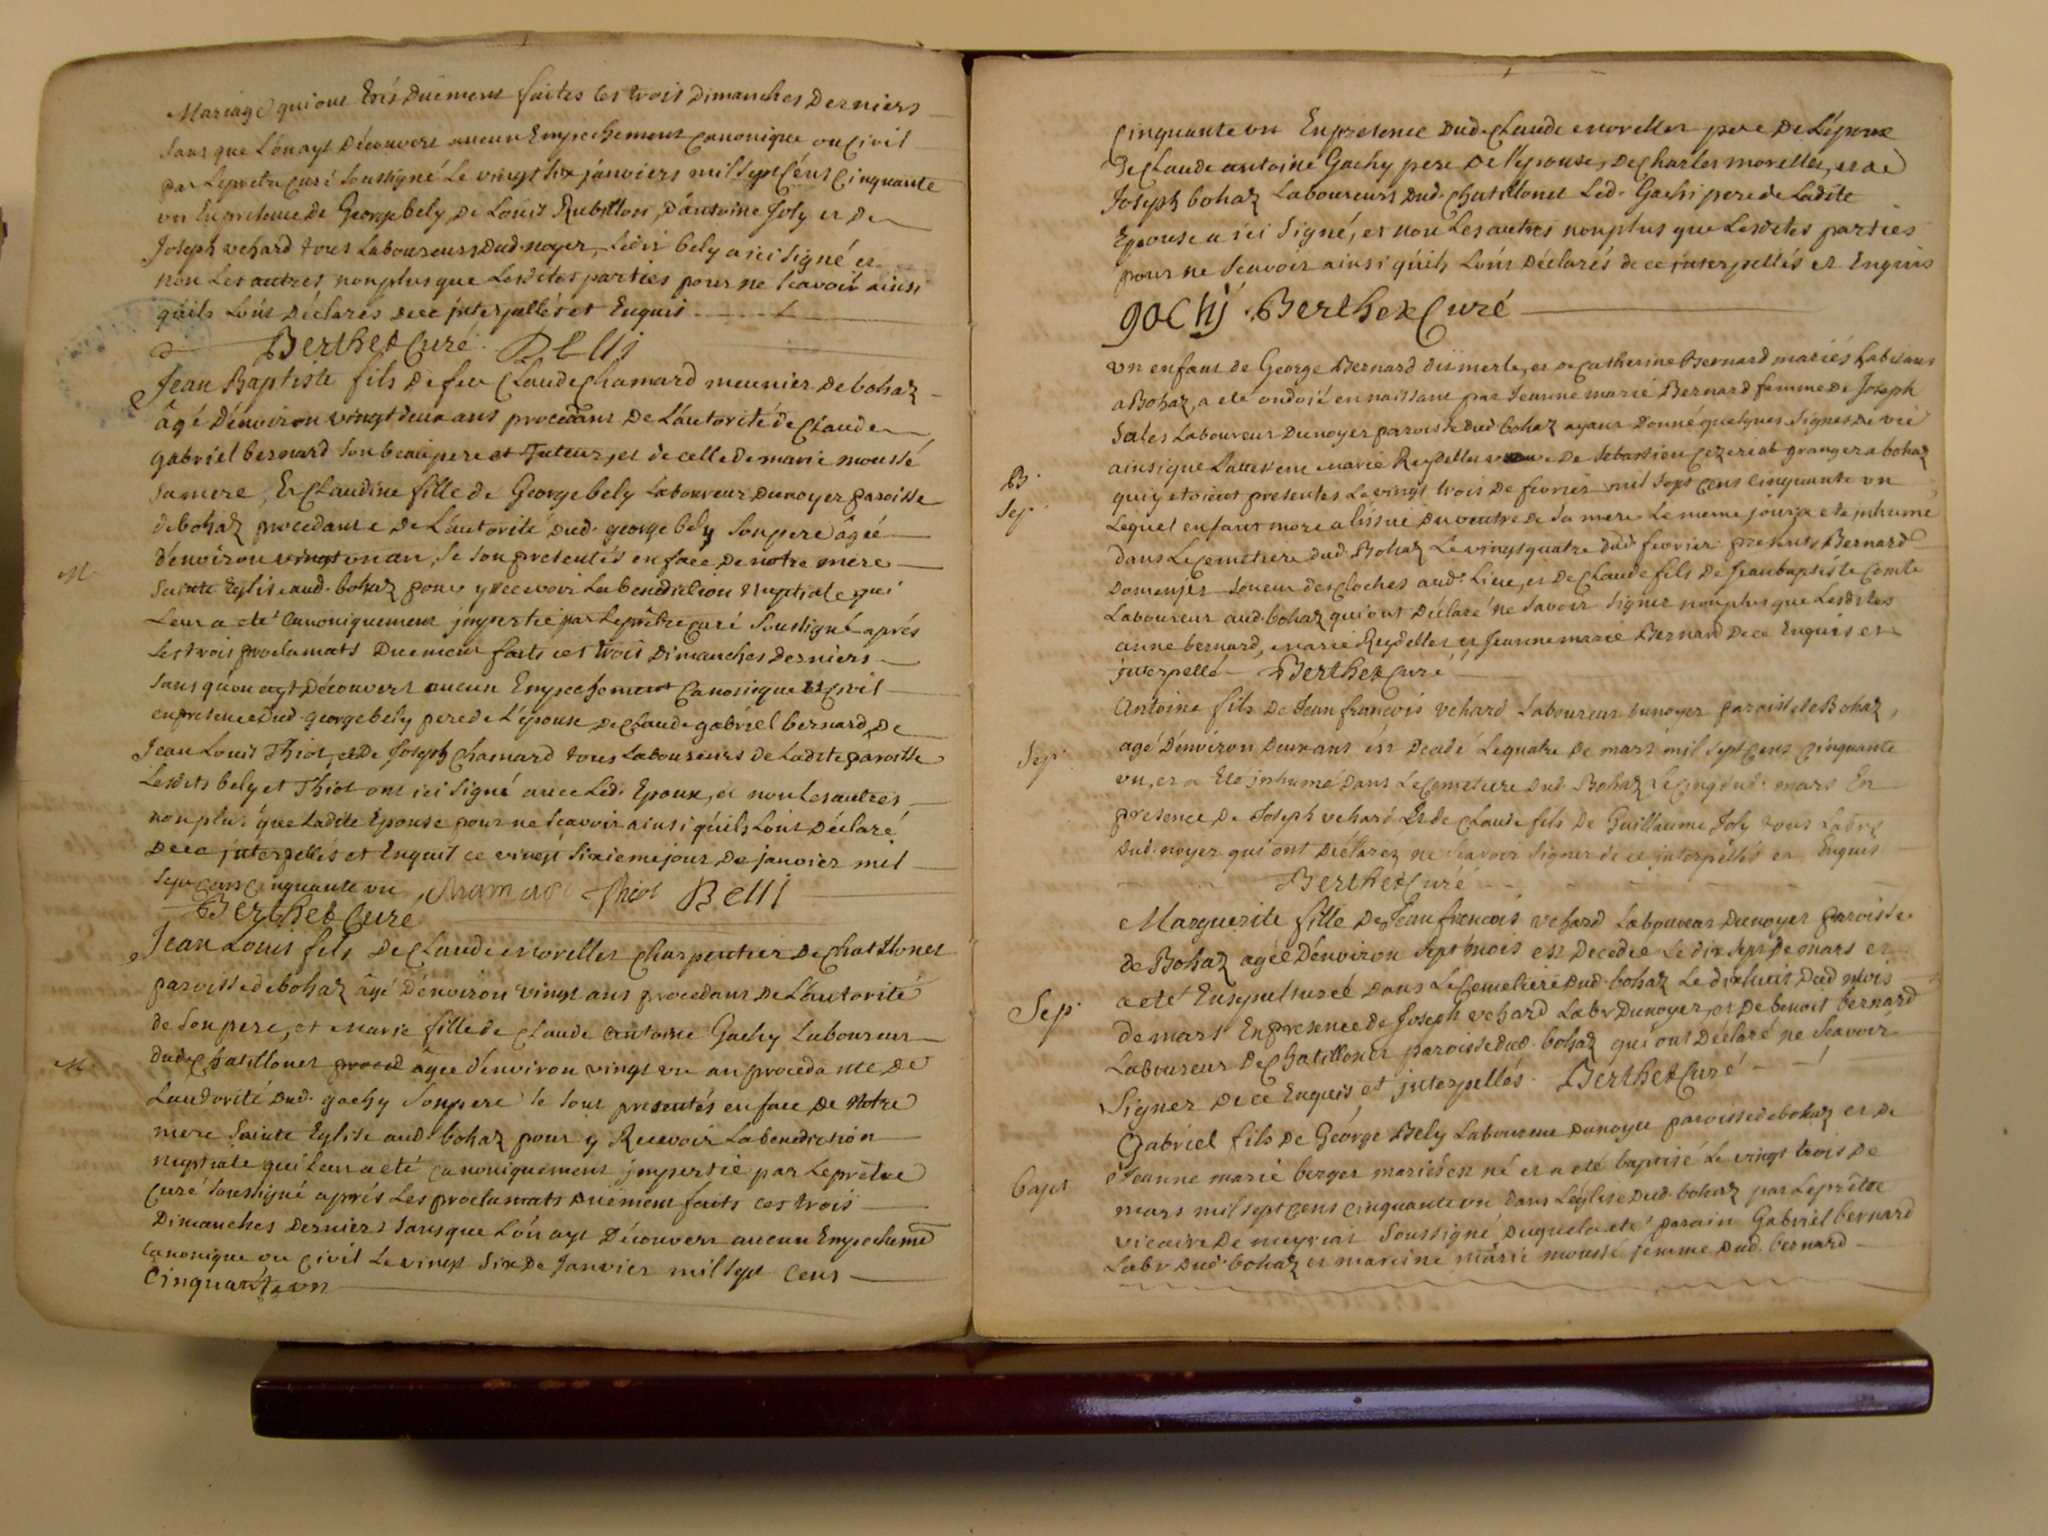 Mariage qui ont Etés Düement faites les trois Dimanches Derniers
sans que L'on ayt Découvert aucun Empechement canonique ou Civil
par Leprêtre Curé soussigné Le vingt six janviers mil sept Cens Cinquante
un En presence de George bely, De Louis Rubillon, D'antoine Joly et De
Joseph vehard tous Laboureurs Dud. noyer, Ledit bely a ici signé et
non Les autres nonplus que Lesdites parties pour ne scavoir ainsi
qu'ils L'ont Déclarés dece jnterpellés et Enquis
Berthet Curé. Belli
Jean Baptiste fils De feu Claude Chamard meunier de bohaz
âgé D'environ vingt deux ans procedans De L'autorité de Claude
gabriel bernard son beaupere et Tuteur, et de celle de marie moussé
sa mere, Et Claudine fille de George bely Laboureur Dunoyer paroisse
de bohaz procedante De L'autorité dud. george bely son pere âgée
D'environ vingt un an, se son presentés en face De notre mere
M.
sainte Eglise aud. bohaz pour y recevoir La benediction Nuptiale qui
Leur a eté Canoniquement jmpertie par Leprêtre curé soussigné aprés
Les trois proclamats Duement faits ces trois Dimanches Derniers
sans qu'on ayt Découvert aucun Empechement Canonique et Civil
en presence Dud. george bely pere de L'épouse De Claude gabriel bernard, De
Jean Louis Thiot, et De Joseph Chamard tous Laboureurs de Ladite paroisse
Lesdits bely et Thiot ont ici signé avec Led. Epoux, et non Les autres
nonplus que Ladite Epouse pour ne scavoir ainsi qu'ils L'ont Déclaré
Dece jnterpellés et Enquis ce vingt sixieme jour De janvier mil
sept cens cinquante un Thiot Belli
Berthet Curé
Jean Louis fils De Claude morellet Charpentier De Chatillonet
paroisse de bohaz âgé D'environ vingt ans procedans De L'autorité
de son pere, et Marie fille de Claude antoine Gachy Laboureur
dud. Chatillonet âgée d'environ vingt un an procedante De
M.
L'autorité Dud. gachy son pere se sont presentés en face De Notre
mere sainte Eglise aud. bohaz pour y Recevoir La benediction
nuptiale qui leur a eté canoniquement jmpertie par Leprêtre
Curé soussigné aprés Les proclamats Duement faits ces trois
Dimanches Derniers sans que L'on ayt Découvert aucun Empechemt
Canonique ou Civil Le vingt six De Janvier mil sept Cens
Cinquante un
Cinquante un En presence Dud. Claude morellet pere De L'époux
De Claude antoine Gachy pere De l'épouse, De Charles morellet, et de
Joseph bohaz Laboureurs Dud. Chatillonet Led. Gachi pere de Ladite
Epouse a ici signé, et non Les autres nonplus que Lesdites parties
pour ne scavoir ainsi qu'ils L'ont Déclarés de ce jnterpellés et Enquis
gochj Berthet Curé
un enfant de George Bernard dit merle, et De Catherine Bernard mariés habitans
a Bohaz, a eté ondoié en naissant par Jeanne marie Bernard femme De Joseph
Sales Laboureur Dunoyer paroisse dud. bohaz ayant Donné quelques signes De vie
ainsi que L'atteste marie Reydellet De Sebastien granger a bohaz
B.
qui y etoient presentes Le vingt trois De fevrier mil sept cens cinquante un
Sep.
Lequel enfant mort a L'issue Du ventre De sa mere Le meme jour, a eté jnhumé
dans Le Cemetiere dud. Bohaz Le vingt quatre dud. fevrier presents Bernard
Domenjet soneur des Cloches aud. Lieu, et De Claude fils De Jean baptiste Comte
Laboureur aud. bohaz qui ont Déclaré ne savoir signer nonplus que Lesdites
anne bernard, marie Reydellet et Jeanne marie Bernard Dece Enquis et
jnterpellé Berthet Curé
Antoine fils De Jean francois vehard Laboureur dunoyer paroisse de Bohaz,
agé D'environ Deux ans est Decedé Le quatre De mars mil sept cens cinquante
Sep.
un, et a Eté jnhumé Dans Le Cemetiere Dud. Bohaz Le Cinq dud. mars En
presence De Joseph vehard Et de Claude fils De Guillaume Joly tous Labrs
Dud. noyer qui ont Déclarez ne scavoir signer de ce jnterpellés et Enquis
Berthet Curé
Marguerite fille De Jean francois vehard Laboureur Dunoyer paroisse
de Bohaz agée D'environ sept mois est Decedée Le dix sept De mars et
a eté Ensepulturée Dans Le Cemetiere Dud. bohaz Le dixhuit Dud. mois
Sep.
de mars En presence de Joseph vehard Labr Dunoyer, et De benoit bernard
Laboureur De Chatillonet paroisse dud. bohaz qui ont Déclaré ne scavoir
signer De ce Enquis et jnterpellés. Berthet Curé
Gabriel fils De George Bely Laboureur Dunoyer paroisse de bohaz et De
Jeanne marie berger mariés est né et a eté baptisé Le vingt trois De
Bapt
mars mil sept cens cinquante un dans L'eglise Dud. bohaz par Leprêtre
vicaire De meyriat soussigné Duquel a eté parain Gabriel bernard
Labr Dud. bohaz et mareine marie moussé femme Dud. bernard